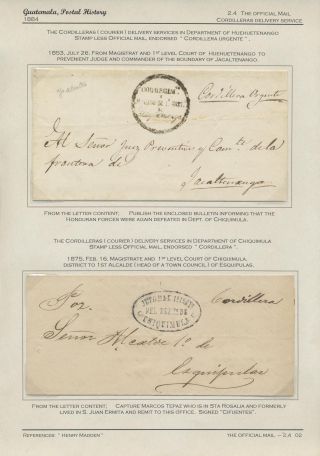 Guatemala, Postal History
1884
2.4 The official Mail,
Cordilleras delivery service
The Cordilleras (courier) delivery services in Department of Huehuetenango
Stamp less Official mail, endorsed "Cordillera Urgente".
1853, July 26, From Magistrat and 1st level Court of Huehuetenango to
prevenient Judge and commander of the boundary of Jacaltenango.
Cordillera Urgente
Al Señor Juez Preventivo y Comte. de la
frontera de
Jacaltenango
From the letter content; Publish the enclosed bulletin informing that the
Honduran forces were again defeated in Dept. of Chiquimula.
The Cordilleras (courier) delivery services in Department of Chiquimula
Stamp less Official mail, endorsed "Cordillera".
1875, Feb. 16, Magistrate and 1st level Court of Chiquimula
district to 1st Alcalde (head of a town council) of Esquipulas.
Cordillera
CHIQUIMULA
Señor Alcalde 1o. de
Esquipulas
From the letter content; Capture Marcos Tepaz who is in Sta Rosalia and formerly
lived in S. Juan Ermita and remit to this office. Signed "Cifuentes".
References "Henry Madden"
the official mail – 2.4 02